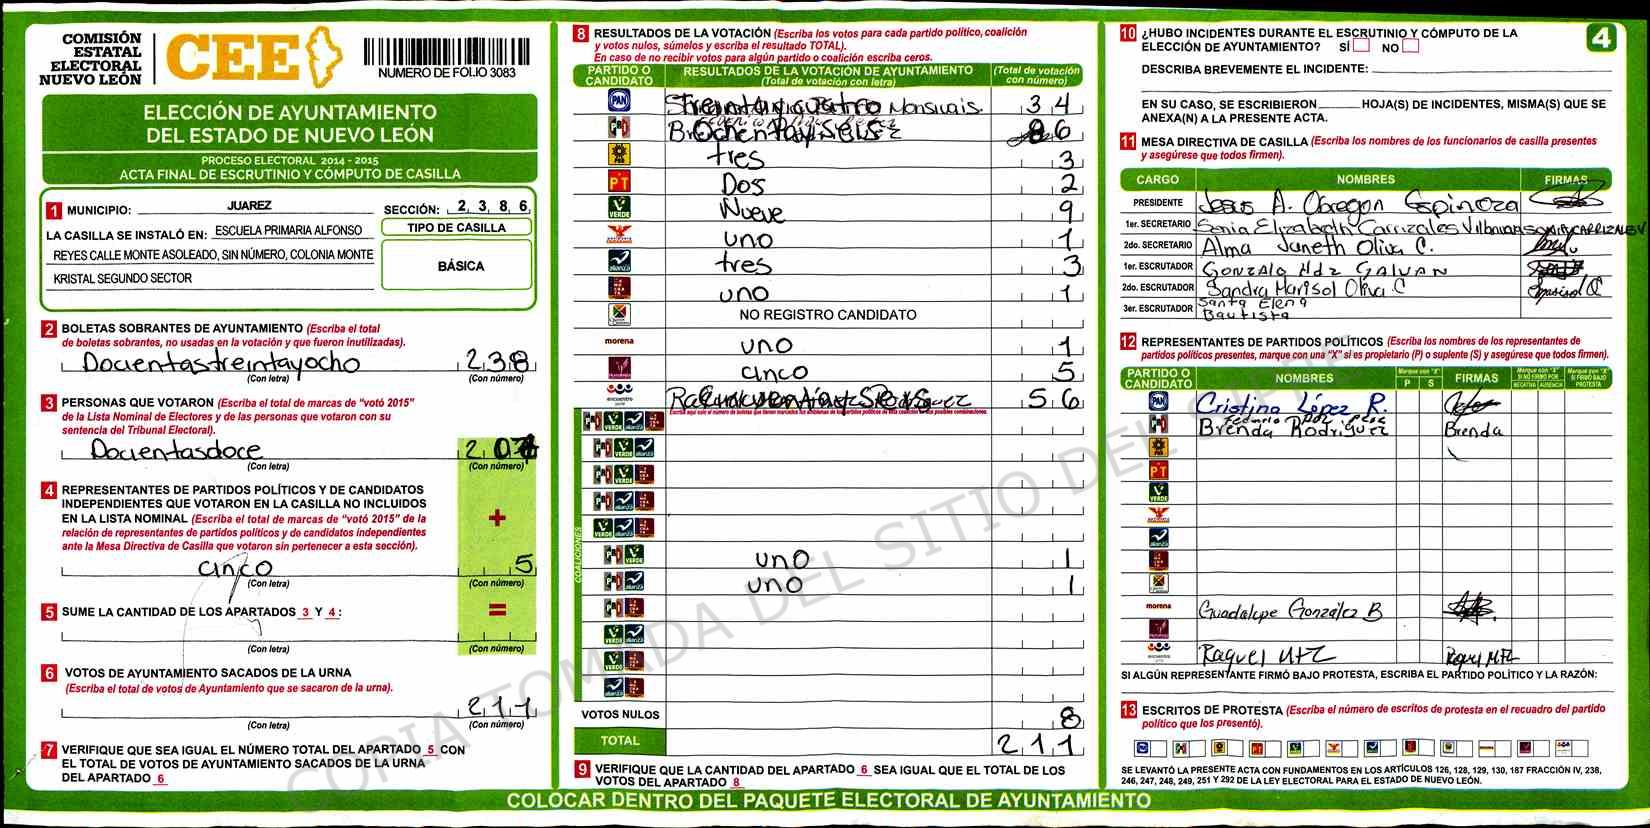 COMISIÓN
ESTATAL
ELECTORAL
NUEVO LEÓN
CEE
NUMERO DE FOLIO 3083
ELECCIÓN DE AYUNTAMIENTO
DEL ESTADO DE NUEVO LEÓN
PROCESO ELECTORAL 2014 - 2015
ACTA FINAL DE ESCRUTINIO Y CÓMPUTO DE CASILLA
1 MUNICIPIO: JUAREZ SECCIÓN: 2, 3, 8, 6,
LA CASILLA SE INSTALÓ EN: ESCUELA PRIMARIA ALFONSO
REYES CALLE MONTE ASOLEADO, SIN NÚMERO, COLONIA MONTE
KRISTAL SEGUNDO SECTOR
TIPO DE CASILLA
BÁSICA
2 BOLETAS SOBRANTES DE AYUNTAMIENTO (Escriba el total
de boletas sobrantes, no usadas en la votación y que fueron inutilizadas).
Docientastreintayocho 238
(Con letra) (Con número)
3 PERSONAS QUE VOTARON (Escriba el total de marcas de "votó 2015"
de la Lista Nominal de Electores y de las personas que votaron con su
sentencia del Tribunal Electoral).
Docientasdoce
(Con letra) (Con número)
4 REPRESENTANTES DE PARTIDOS POLÍTICOS Y DE CANDIDATOS
INDEPENDIENTES QUE VOTARON EN LA CASILLA NO INCLUIDOS
EN LA LISTA NOMINAL (Escriba el total de marcas de "votó 2015" de la
relación de representantes de partidos políticos y de candidatos independientes
ante la Mesa Directiva de Casilla que votaron sin pertenecer a esta sección).
+
cinco 5
(Con letra) (Con número)
5 SUME LA CANTIDAD DE LOS APARTADOS 3 Y 4:
=
(Con letra) (Con número)
6 VOTOS DE AYUNTAMIENTO SACADOS DE LA URNA
(Escriba el total de votos de Ayuntamiento que se sacaron de la urna).
211
(Con letra) (Con número)
7 VERIFIQUE QUE SEA IGUAL EL NÚMERO TOTAL DEL APARTADO 5 CON
EL TOTAL DE VOTOS DE AYUNTAMIENTO SACADOS DE LA URNA
DEL APARTADO 6
8 RESULTADOS DE LA VOTACIÓN (Escriba los votos para cada partido político, coalición
y votos nulos, súmelos y escriba el resultado TOTAL).
En caso de no recibir votos para algún partido o coalición escriba ceros.
PARTIDO O CANDIDATO
RESULTADOS DE LA VOTACIÓN DE AYUNTAMIENTO
(Total de votación con letra)
(Total de votación con número)
PAN Treintaycuatro 34
PRI Ochentayseis 86
PRD tres 3
PT Dos 2
VERDE Nueve 9
uno 1
alianza tres 3
uno 1
NO REGISTRO CANDIDATO
morena uno 1
cinco 5
encuentro 56
COALICIONES
PRI VERDE uno 1
PRI alianza uno 1
VOTOS NULOS 8
TOTAL 211
9 VERIFIQUE QUE LA CANTIDAD DEL APARTADO 6 SEA IGUAL QUE EL TOTAL DE LOS
VOTOS DEL APARTADO 8
10 ¿HUBO INCIDENTES DURANTE EL ESCRUTINIO Y CÓMPUTO DE LA
ELECCIÓN DE AYUNTAMIENTO? SÍ NO
4
DESCRIBA BREVEMENTE EL INCIDENTE:
EN SU CASO, SE ESCRIBIERON HOJA(S) DE INCIDENTES, MISMA(S) QUE SE
ANEXA(N) A LA PRESENTE ACTA.
11 MESA DIRECTIVA DE CASILLA (Escriba los nombres de los funcionarios de casilla presentes
y asegúrese que todos firmen).
CARGO NOMBRES FIRMAS
PRESIDENTE Jesus A. Obregon Espinoza
1er. SECRETARIO Sonia Elizabeth Carrizales
2do. SECRETARIO Alma Janeth Oliva C.
1er. ESCRUTADOR GONZALO Hdz GALVAN
2do. ESCRUTADOR Sandra Marisol Oliva C
3er. ESCRUTADOR Santa Elena
Bautista
12 REPRESENTANTES DE PARTIDOS POLÍTICOS (Escriba los nombres de los representantes de
partidos políticos presentes, marque con una "X" si es propietario (P) o suplente (S) y asegúrese que todos firmen).
PARTIDO O CANDIDATO
NOMBRES
Marque con "X"
P S
FIRMAS
Marque con "X" SI NO FIRMÓ POR
NEGATIVA AUSENCIA
Marque con "X" SI FIRMÓ BAJO PROTESTA
PAN Cristina López R.
PRI Brenda Rodriguez Brenda
PRD
PT
VERDE
alianza
morena Guadalupe González B
encuentro Raquel Mtz Raquel Mtz
SI ALGÚN REPRESENTANTE FIRMÓ BAJO PROTESTA, ESCRIBA EL PARTIDO POLÍTICO Y LA RAZÓN:
13 ESCRITOS DE PROTESTA (Escriba el número de escritos de protesta en el recuadro del partido
político que los presentó).
SE LEVANTÓ LA PRESENTE ACTA CON FUNDAMENTOS EN LOS ARTÍCULOS 126, 128, 129, 130, 187 FRACCIÓN IV, 238,
246, 247, 248, 249, 251 Y 292 DE LA LEY ELECTORAL PARA EL ESTADO DE NUEVO LEÓN.
COLOCAR DENTRO DEL PAQUETE ELECTORAL DE AYUNTAMIENTO
COPIA TOMADA DEL SITIO DEL SIPRE